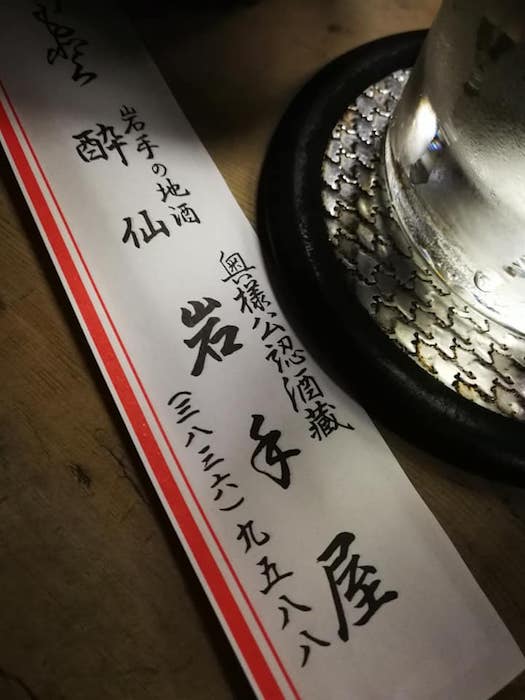 岩手の地酒
酔仙
奥様公認酒藏
岩手屋
(三八三六)九五八八